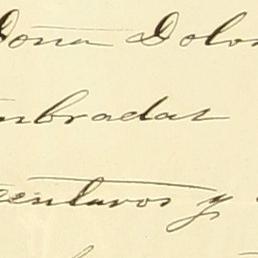 Doña Dolo
mbradas
centavos y